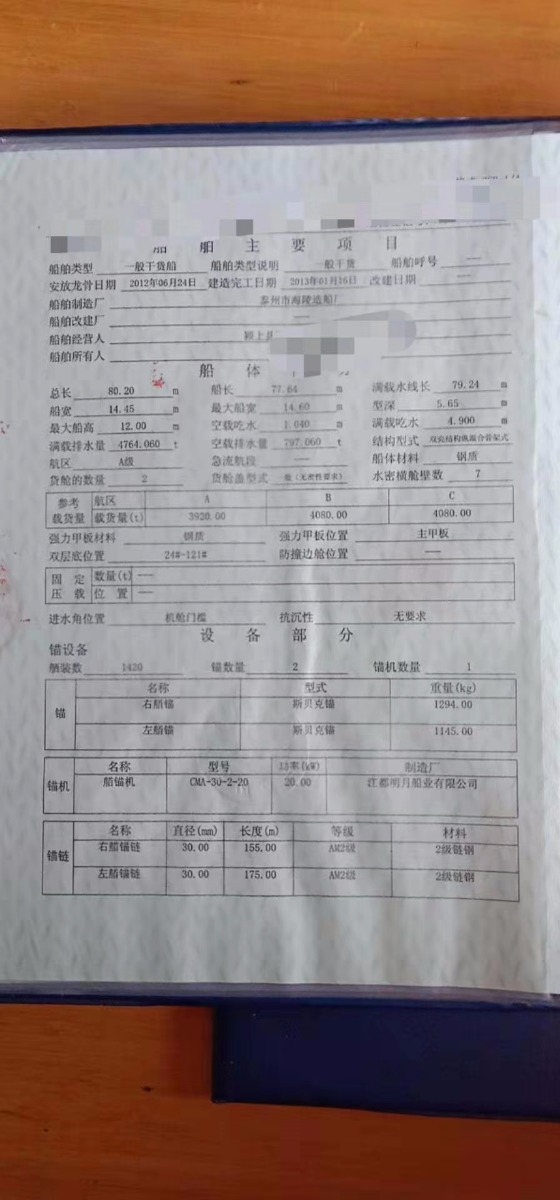 船舶主要项目
船舶类型 一般干货船 船舶类型说明 一般干货 船舶呼号 —
安放龙骨日期 2012年06月24日 建造完工日期 2013年01月16日 改建日期 —
船舶制造厂 泰州市海陵造船厂
船舶改建厂 —
船舶经营人 颍上县
船舶所有人
船体
总长 80.20 m 船长 77.64 m 满载水线长 79.24 m
船宽 14.45 m 最大船宽 14.60 m 型深 5.65 m
最大船高 12.00 m 空载吃水 1.040 m 满载吃水 4.900 m
满载排水量 4764.060 t 空载排水量 797.060 t 结构型式 双壳结构纵混合骨架式
航区 A级 急流航段 — 船体材料 钢质
货舱的数量 2 货舱盖型式 (无密性要求) 水密横舱壁数 7
参考 航区 A B C
载货量 载货量(t) 3920.00 4080.00 4080.00
强力甲板材料 钢质 强力甲板位置 主甲板
双层底位置 24#-121# 防撞边舱位置 —
固定 数量(t) —
压载 位置 —
进水角位置 机舱门槛 抗沉性 无要求
设备部分
锚设备
舾装数 1420 锚数量 2 锚机数量 1
名称 型式 重量(kg)
锚 右艏锚 斯贝克锚 1294.00
左艏锚 斯贝克锚 1145.00
名称 型号 功率(kW) 制造厂
锚机 艏锚机 CMA-30-2-20 20.00 江都明月船业有限公司
名称 直径(mm) 长度(m) 等级 材料
锚链 右艏锚链 30.00 155.00 AM2级 2级链钢
左艏锚链 30.00 175.00 AM2级 2级链钢